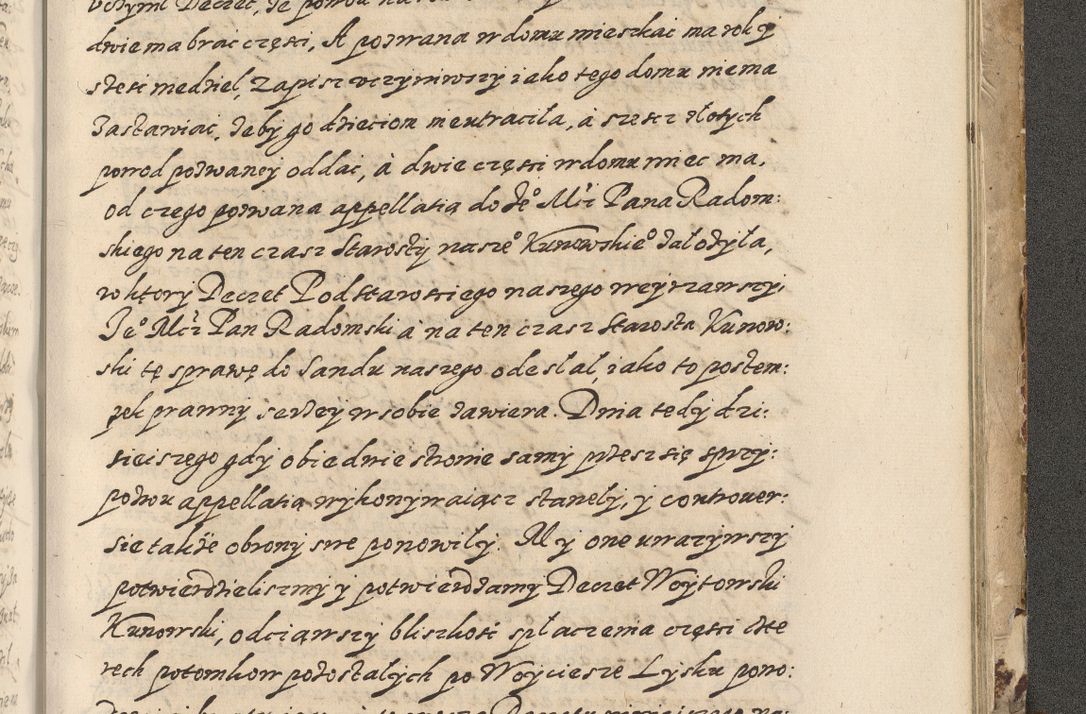 dwie ma brac części, A pozwana w domu mieszkac ma rok y
sześć niedziel, Zapisz vczyniwszy iako tego domu niema
Zastawiać, żeby go dzieciom nieutraciła, a sześć złotych
powod pozwaney oddać, à dwie części w domu miec ma,
od czego pozwana appellatią do Je° Mći Pana Radom:
skiego na ten czasz Starosty nasze° Kunowskie° założyła,
w ktory Decret Podstarosciego naszego weyrzawszy,
Je° Mći Pan Radomski a na ten czasz Starosta Kunow:
ski tę sprawę do Sandu naszego odesłał, iako to postem:
pek prawny szerzey w sobie zawiera. Dnia tedy dzi:
sieiszego gdy obiedwie stronie samy przesz się sprzy:
pozwu appellatią wykonywaiącz stanęły, y controuer:
sie także obrony swe ponowiły. My one uwazywszy
potwierdzieliszmy y potwierdzamy Decret Woytowski
Kunowski, odciąwszy bliszkość spłaczenia części czte
rech potomkow pozostałych po Woyciesze Lysku powo: